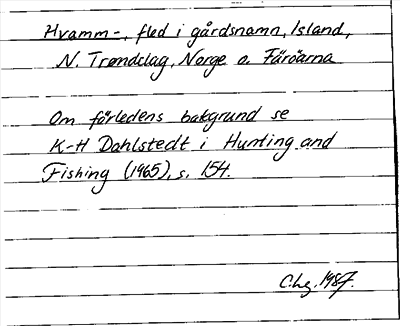 Hvamm-, fled i gårdsnamn, Island,
N. Trøndelag, Norge o. Färöarna
Om förledens bakgrund se
K-H Dahlstedt i Hunting and
Fishing (1965), s. 154.
C.hg. 1987.